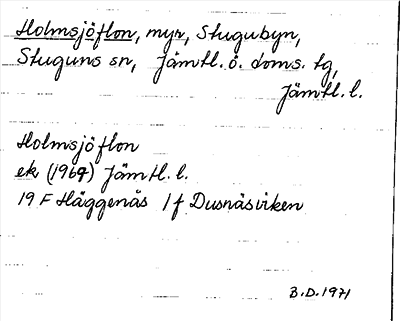 Holmsjöflon, myr, Stugubyn,
Stuguns sn, Jämtl. ö. doms. tg,
Jämtl. l.
Holmsjöflon
ek (1969) Jämtl. l.
19 F Häggenås 1 f Dusnäsviken
B.D. 1971